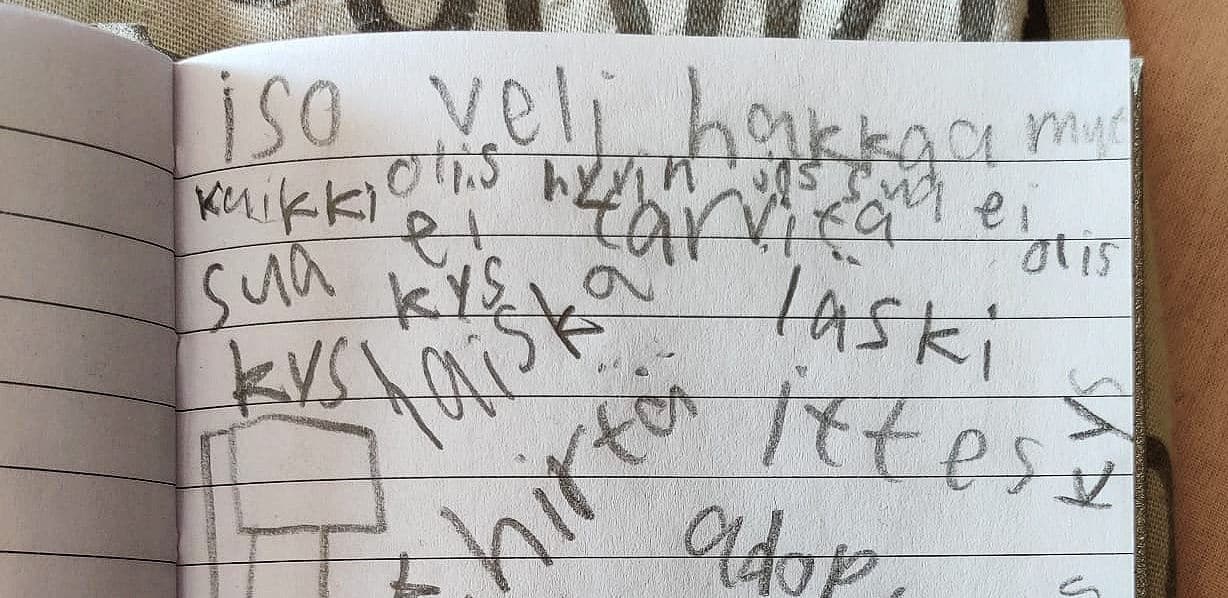 iso veli hakkaa
kaikki olis hyvin jos sua ei olis
sua ei tarvita
kys
haiska laski
kys
hirtä ittes
kys
adop